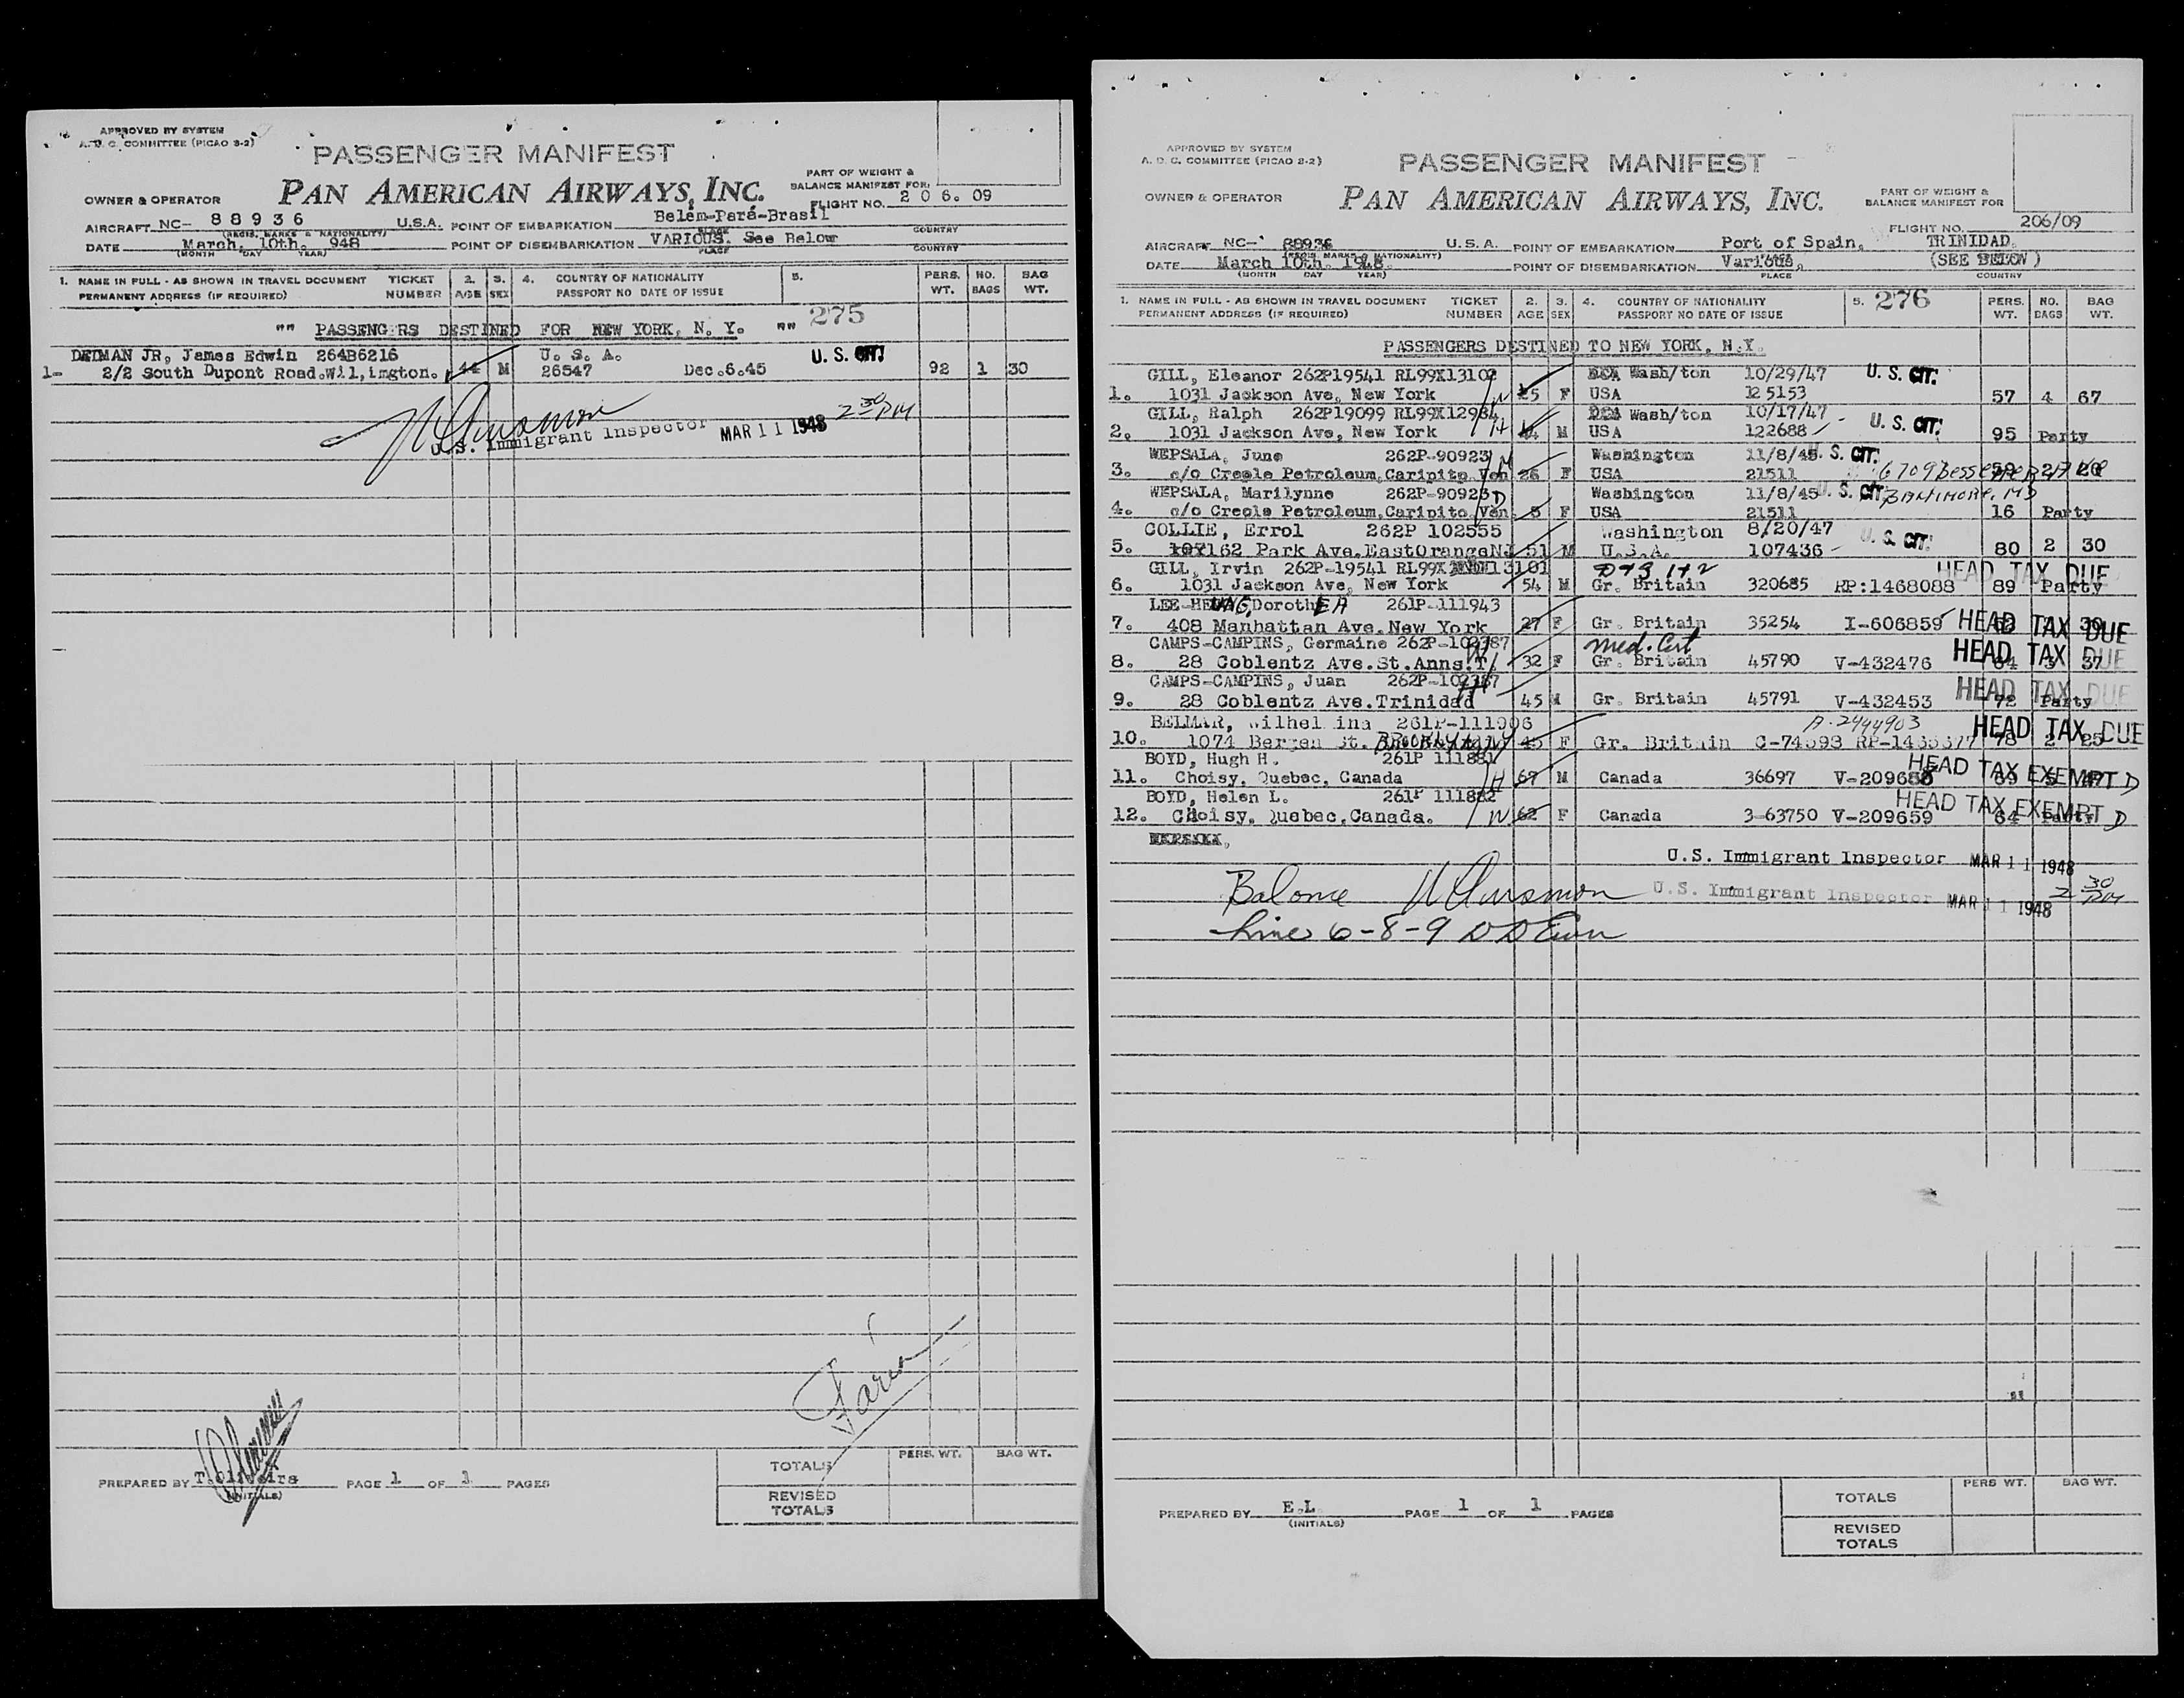 APPROVED BY SYSTEM
A. O. C. COMMITTEE (PICAO S-2)
PASSENGER MANIFEST
OWNER & OPERATOR PAN AMERICAN AIRWAYS, INC.
PART OF WEIGHT &
BALANCE MANIFEST FOR
FLIGHT NO. 2 0 6. 09
AIRCRAFT NC- 8 8 9 3 6 U.S.A. POINT OF EMBARKATION Belém-Pará-Brasil
(REGIS. MARKS & NATIONALITY) PLACE COUNTRY
DATE March. 10th. 948 POINT OF DISEMBARKATION VARIOUS. See Below
(MONTH DAY YEAR) PLACE COUNTRY
1. NAME IN FULL - AS SHOWN IN TRAVEL DOCUMENT TICKET 2. 3. 4. COUNTRY OF NATIONALITY 5. PERS. NO. BAG
PERMANENT ADDRESS (IF REQUIRED) NUMBER AGE SEX PASSPORT NO DATE OF ISSUE WT. BAGS WT.
275
"" PASSENGERS DESTINED FOR NEW YORK, N. Y. ""
James Edwin 264B6216 U. S. A. U. S. CIT.
1- 2/2 South Dupont Road.Wil,imgton. 44 M 26547 Dec.6.45 92 1 30
U.S. Immigrant Inspector MAR 11 1948 2 30 PM
Faria
PREPARED BY T.Oliveira PAGE 1 OF 1 PAGES
(INITIALS)
PERS. WT. BAG WT.
TOTALS
REVISED
TOTALS
APPROVED BY SYSTEM
A. O. C. COMMITTEE (PICAO S-2)
PASSENGER MANIFEST
OWNER & OPERATOR PAN AMERICAN AIRWAYS, INC.
PART OF WEIGHT &
BALANCE MANIFEST FOR
FLIGHT NO. 206/09
AIRCRAFT NC- 88936 U.S.A. POINT OF EMBARKATION Port of Spain, TRINIDAD.
(REGIS. MARKS & NATIONALITY)
DATE March 10th. 1948 POINT OF DISEMBARKATION Various, (SEE BELOW)
(MONTH DAY YEAR) PLACE COUNTRY
1. NAME IN FULL - AS SHOWN IN TRAVEL DOCUMENT TICKET 2. 3. 4. COUNTRY OF NATIONALITY 5. 276 PERS. NO. BAG
PERMANENT ADDRESS (IF REQUIRED) NUMBER AGE SEX PASSPORT NO DATE OF ISSUE WT. BAGS WT.
PASSENGERS DESTINED TO NEW YORK, N.Y.
GILL, Eleanor 262P19541 RL99X13102 Wash/ton 10/29/47 U. S. CIT.
1. 1031 Jackson Ave, New York W F USA 125153 57 4 67
GILL, Ralph 262P19099 RL99X12984 Wash/ton 10/17/47 U. S. CIT.
2. 1031 Jackson Ave, New York H M USA 122688 95 Party
WEPSALA, June 262P-90923 M Washington 11/8/45 U. S. CIT.
3. c/o Creole Petroleum,Caripito Ven 26 F USA 21511 6709 Bessemer Ave
WEPSALA, Marilynne 262P-90923 D Washington 11/8/45 U. S. CIT. BALTIMORE, MD
4. c/o Creole Petroleum,Caripito,Ven. 5 F USA 21511 16 Party
COLLIE, Errol 262P 102555 Washington 8/20/47 U. S. CIT.
5. 162 Park Ave.EastOrangeNJ 51 M U.S.A. 107436 80 2 30
GILL, Irvin 262P-19541 RL99X 13101 HEAD TAX DUE
6. 1031 Jackson Ave, New York 54 M Gr. Britain 320685 RP:1468088 89 Party
LEE-HEUNG, DorothEA 261P-111943
7. 408 Manhattan Ave.New York 27 F Gr. Britain 35254 I-606859 HEAD TAX DUE
CAMPS-CAMPINS, Germaine 262P-102387 W med. Cert
8. 28 Coblentz Ave.St.Anns.T. 32 F Gr. Britain 45790 V-432476 HEAD TAX DUE 64 3 37
CAMPS-CAMPINS, Juan 262P-102387 H
9. 28 Coblentz Ave.Trinidad 45 M Gr. Britain 45791 V-432453 HEAD TAX DUE 72 Party
BELMAR, Wilhelmina 261P-111906 A-2444903
10. 1074 Bergen St. BROOKLYN NY 45 F Gr. Britain HEAD TAX DUE 78 2 25
BOYD, Hugh H. 261P 111881
11. Choisy, Quebec, Canada H 67 M Canada 36697 V-209658 HEAD TAX EXEMPT D
BOYD, Helen L. 261P 111882
12. Choisy, Quebec,Canada. W 62 F Canada 3-63750 V-209659 HEAD TAX EXEMPT D 64 Party
U.S. Immigrant Inspector MAR 11 1948
Balance U.S. Immigrant Inspector MAR 11 1948 2 30 PM
Line 6-8-9
PREPARED BY E.L. PAGE 1 OF 1 PAGES
(INITIALS)
PERS WT. BAG WT.
TOTALS
REVISED
TOTALS